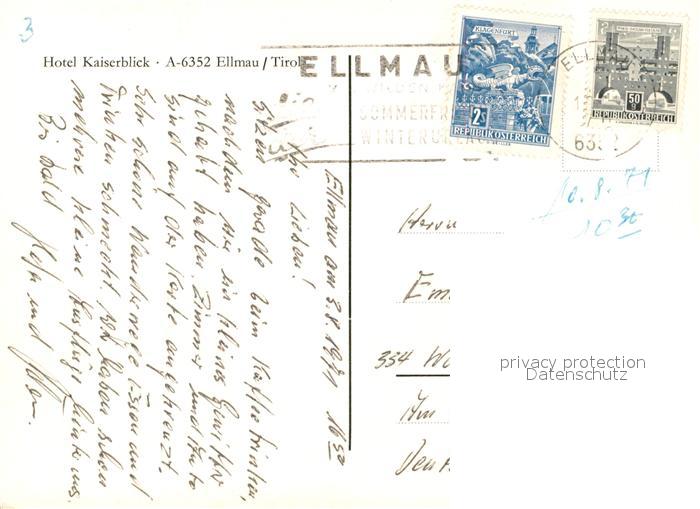 3
Hotel Kaiserblick · A-6352 Ellmau / Tirol
ELLMAU
SOMMERFR
WINTER
KLAGENFURT
2S
REPUBLIK ÖSTERREICH
50g
REPUBLIK ÖSTERREICH
ELLMAU
635
10.8.71
10 30
Ellmau am 3.8.1971 16 30
Ihr Lieben!
Sitzen gerade beim Kaffee trinken,
nachdem wir ein kleines Gewitter
gehabt haben. Zimmer und Auto
sind auf der Karte angekreuzt.
Sehr schöne Wanderwege. Essen und
Trinken schmeckt. Wir haben schon
mehrere kleine Ausflüge hinter uns.
Bis bald und
Herrn
Em
354 Wo
Am
privacy protection
Datenschutz